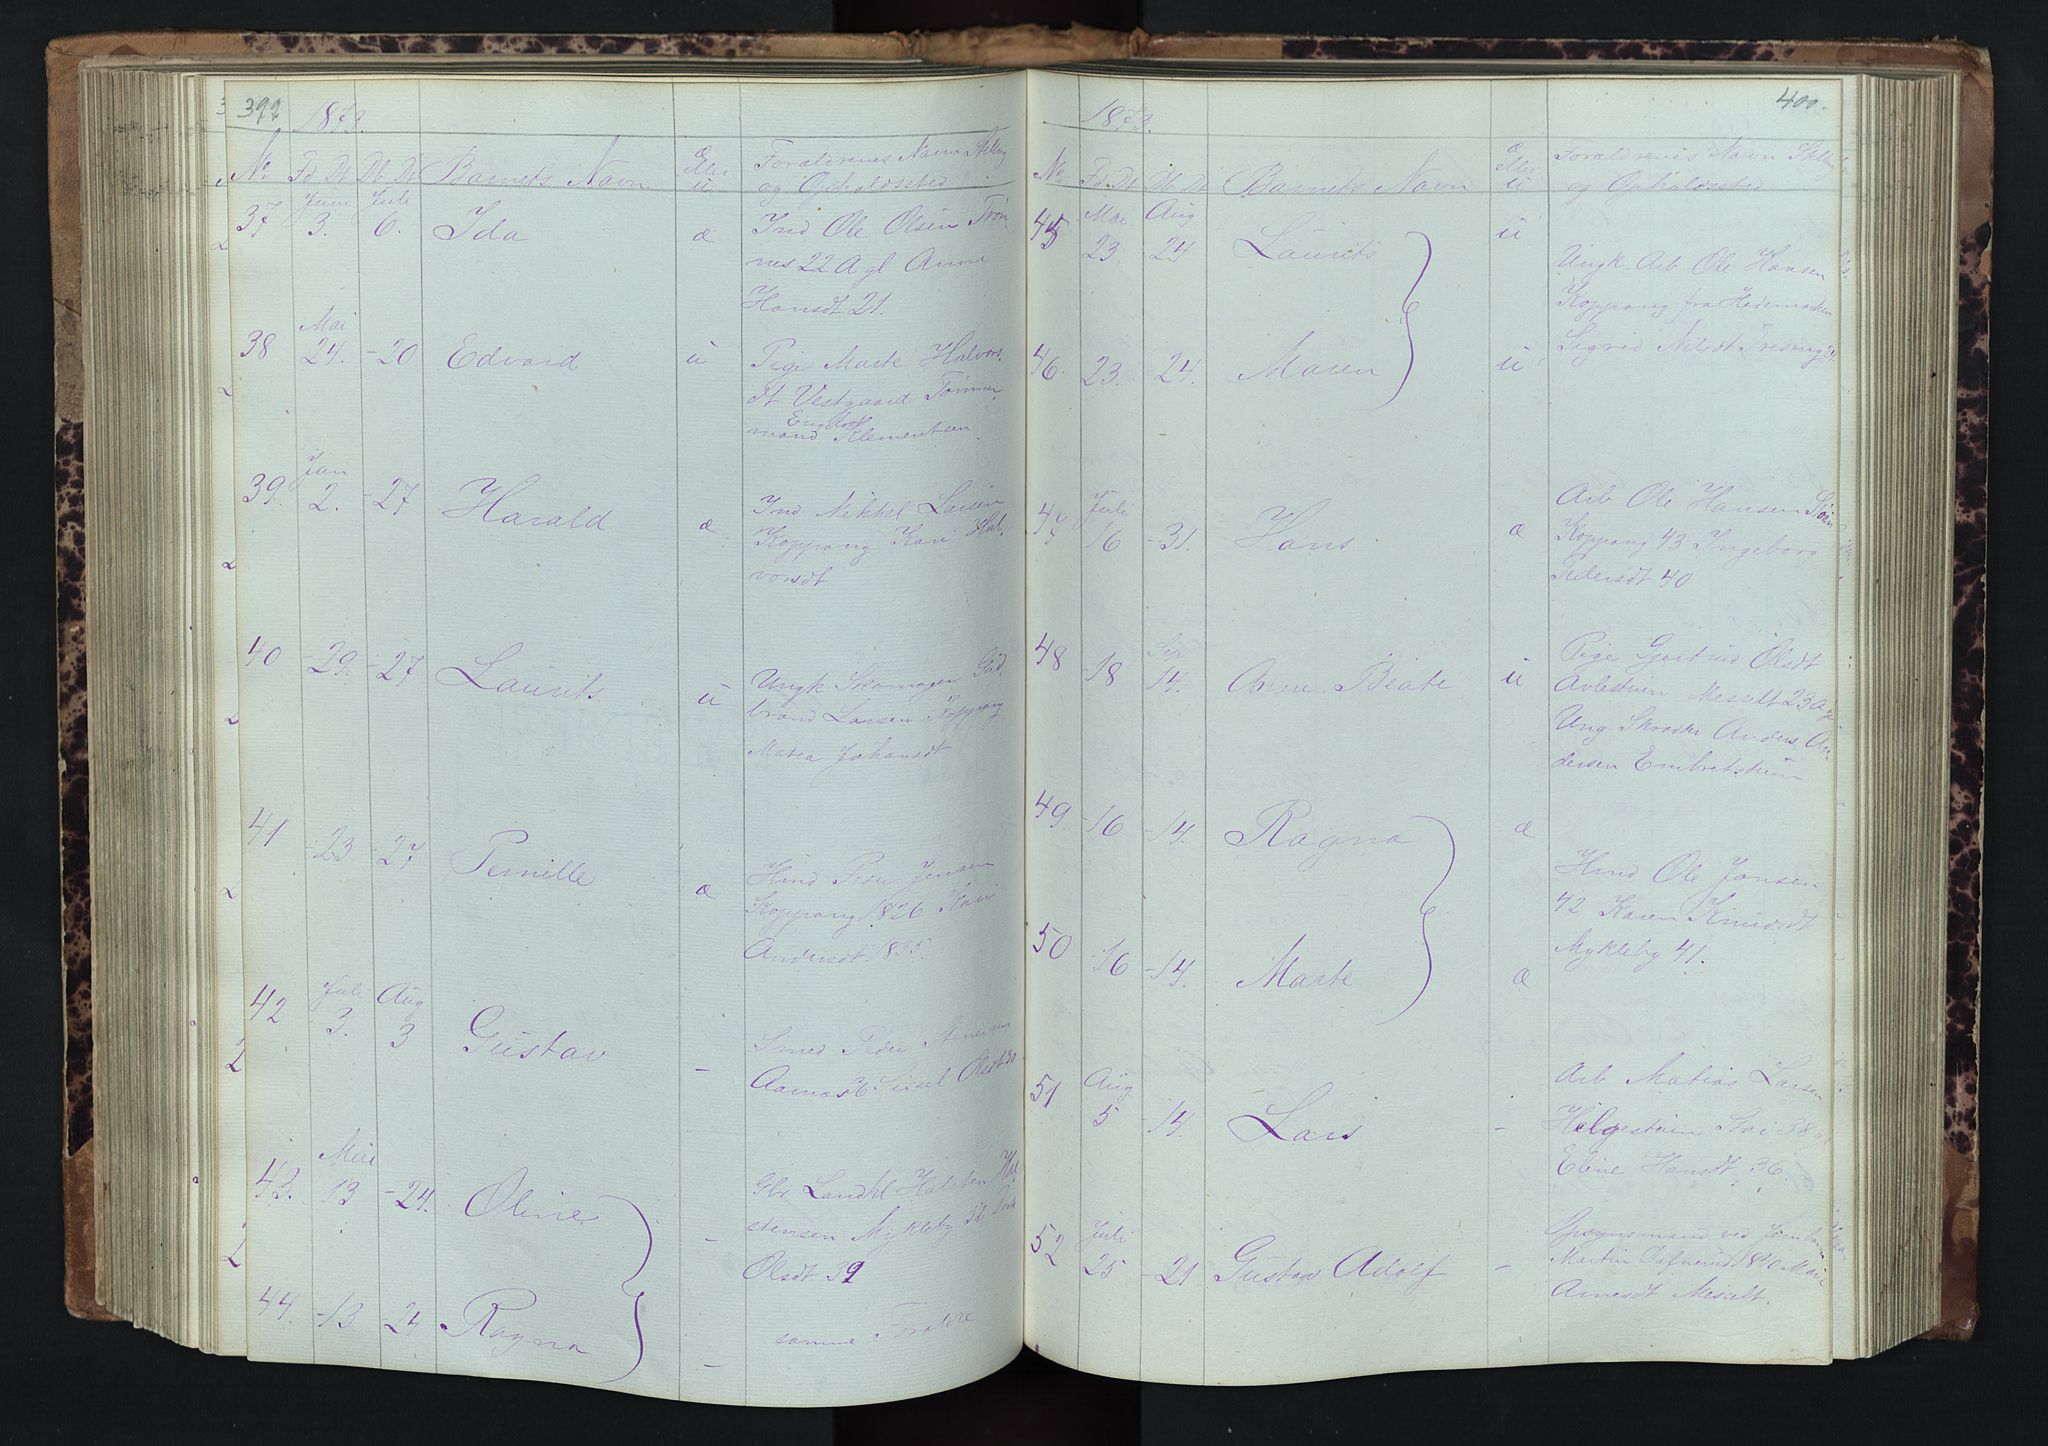 399
1873.
No Fd. Dt Db Dt Barnets Navn Æ eller u Forældrenes Navn Stilling
og Opholdssted
37 Juni 3. Juli 6. Ida æ Ind Ole Olsen Trøn-
nes 22 A gl Anne
Hansdt 21.
38 Mai 24. -20 Edvard u Pige Marte Halvors-
dt Vestgaard Tømmer-
mand Klementsen
39. Jan 2. -27 Harald æ Ind Mikkel Larsen
Koppang Kari Hal-
vorsdt
40 -29. -27 Laurits u Ungk Skomager Gud-
brand Larsen Koppang
Matea Johansdt
41 -23 -27 Pernille æ Hmd Peder Jensen
Koppang 1826 Kari
Andersdt 1835.
42 Juli 3. Aug 3 Gustav - Smed Peder
36. Sisel Olsdt 30
43. Mai 13 -24. Oline - Hal-
stensen Mykleby
Olsdt 39
44. -13 -24 Ragna - samme Foreldre
400.
1873.
No Fd. Dt Db Dt Barnets Navn Æ eller u Forældrenes Navn Stilling
og Opholdssted
45 Mai 23 Aug 24 Laurits u Ungk. Arb Ole Hansen
Koppang fra Hedemarken
Sigrid Nilsdt
46. 23. 24. Maren u
47 Juli 16 -31. Hans æ Arb Ole Hansen
Koppang 43 Ingeborg
Pedersdt 40
48 -18 Sep 14. Anne Beate u Pige Gjertrud Olsdt
Messelt 23 A gl
Ung Skrædder Anders An-
dersen Embretstuen
49. -16 -14. Ragna æ Hmd Ole Jonsen
42 Karen Knudsdt
Mykleby 41.
50 -16 -14. Marte æ
51 Aug 5 -14. Lars - Arb Matias Larsen
Helgestuen Stai 38
Eline Hansdt 36.
52 Juli 25 -21 Gustav Adolf - Opsynsmand ved Jernbanen
Martin 1840 Marie
Arnesdt Messelt.